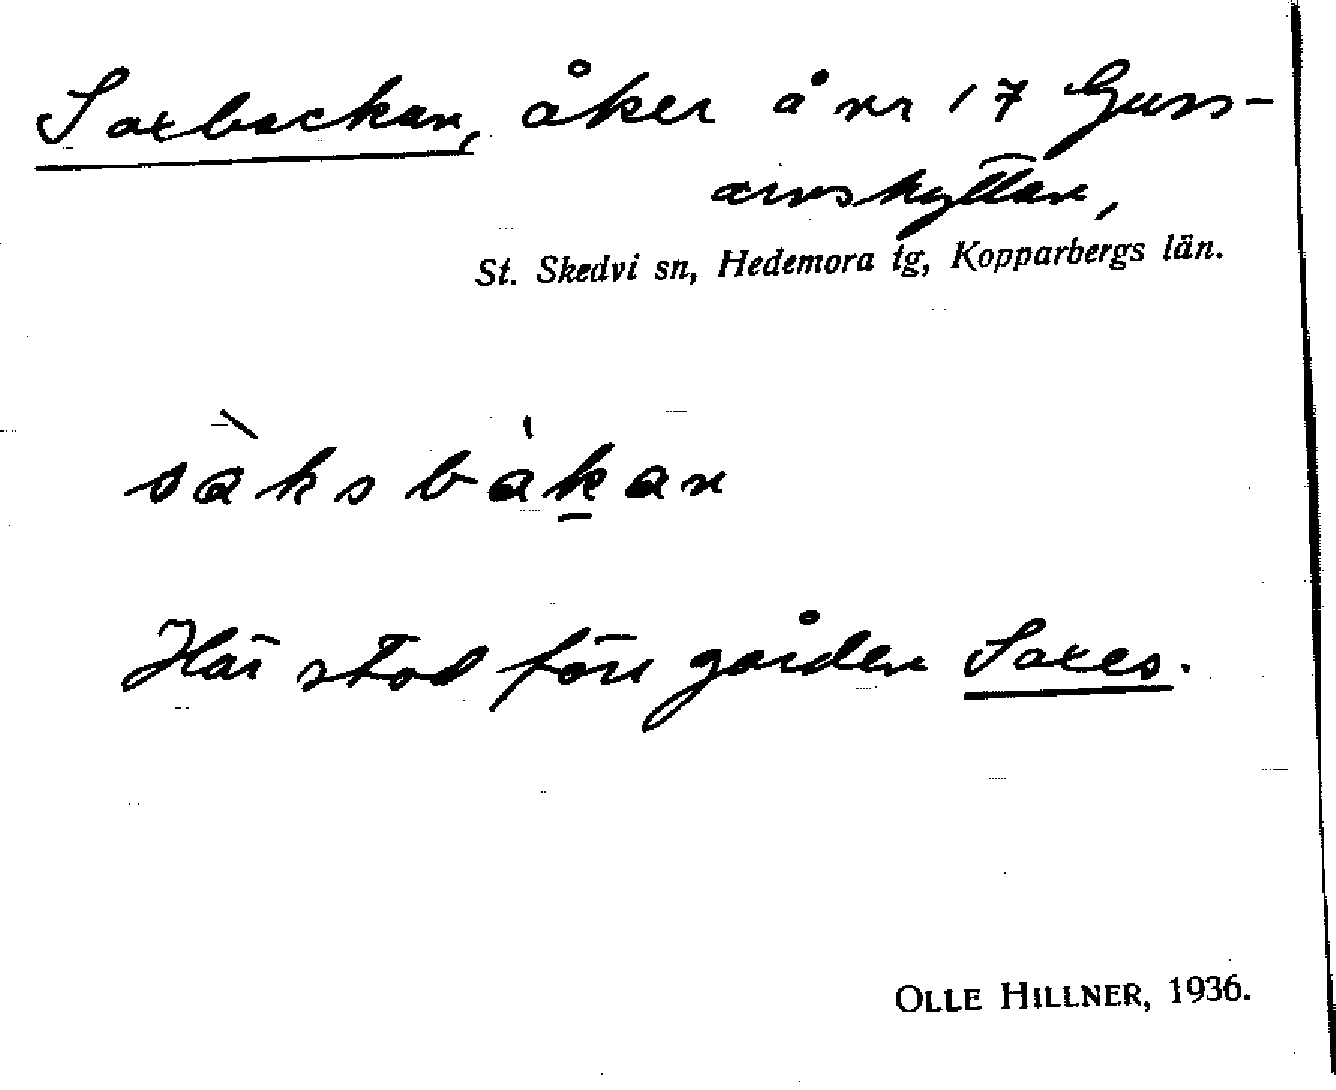 Saxbackan, åker å nr 17 Guss-
arvshyttan,
St. Skedvi sn, Hedemora tg, Kopparbergs län.
sàksbákan
Här stod förr gården Saxes.
OLLE HILLNER, 1936.